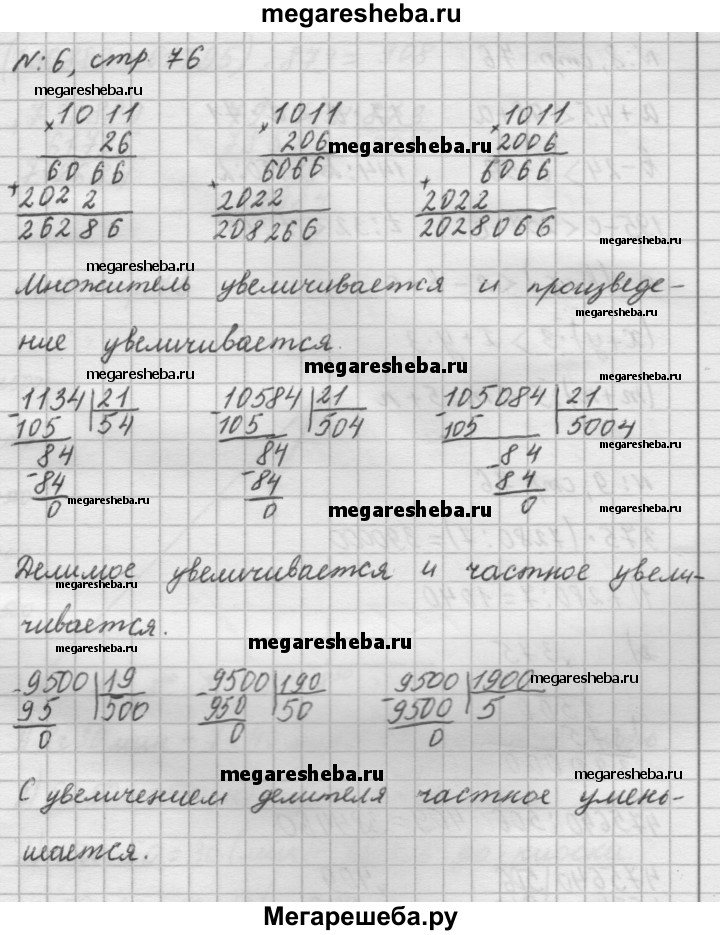 megaresheba.ru
N: 6, стр. 76
megaresheba.ru
× 1011 × 1011 × 1011
26 206 megaresheba.ru 2006
6066 6066 6066
+ 2022 + 2022 + 2022
26286 208266 2028066
megaresheba.ru megaresheba.ru
Множитель увеличивается и произведе-
megaresheba.ru
ние увеличивается.
megaresheba.ru megaresheba.ru
- 1134 | 21 - 10584 | 21 - 105084 | 21
105 | 54 105 | 504 105 | 5004
84 84 - 84 megaresheba.ru
- 84 - 84 84
0 megaresheba.ru 0 0
megaresheba.ru
Делимое увеличивается и частное увели-
megaresheba.ru megaresheba.ru
чивается.
megaresheba.ru megaresheba.ru
- 9500 | 19 - 9500 | 190 - 9500 | 1900 megaresheba.ru
95 | 500 950 | 50 9500 | 5
0 0 0
megaresheba.ru megaresheba.ru
С увеличением делителя частное умень-
megaresheba.ru
шается.
Мегарешеба.ру